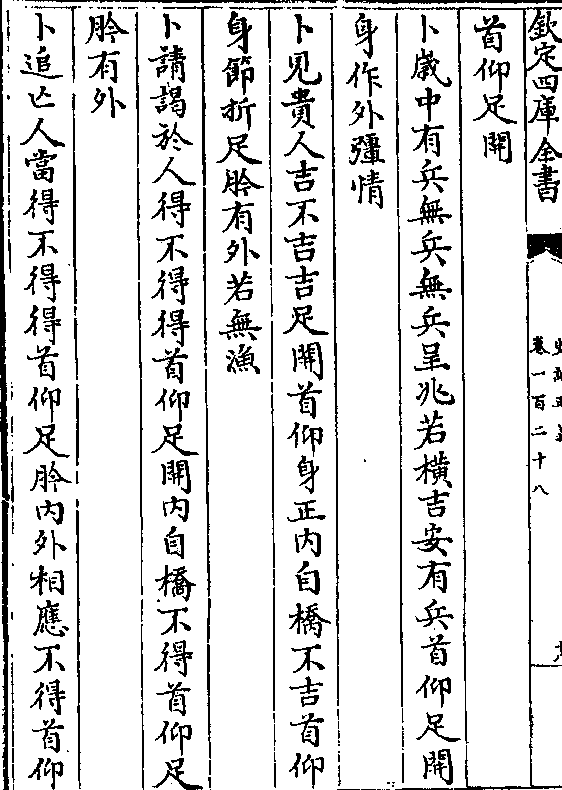 欽定四庫全書
卷一百二十八
首仰足開
卜嵗中有兵無兵無兵呈兆若橫吉安有兵首仰足開
身作外彊情
卜見貴人吉不吉吉足開首仰身正内自橋不吉首仰
身節折足肣有外若無漁
卜請謁於人得不得得首仰足開内自橋不得首仰足
肣有外
卜追亡人當得不得得首仰足肣内外相應不得首仰